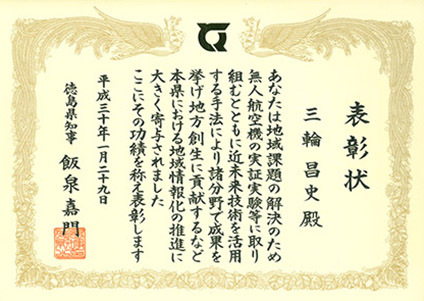 表彰状
三輪昌史 殿
あなたは地域課題の解決のため
無人航空機の実証実験等に取り
組むとともに近未来技術を活用
する手法により諸分野で成果を
挙げ地方創生に貢献するなど
本県における地域情報化の推進に
大きく寄与されました
ここにその功績を称え表彰します
平成三十年一月二十九日
徳島県知事 飯泉嘉門